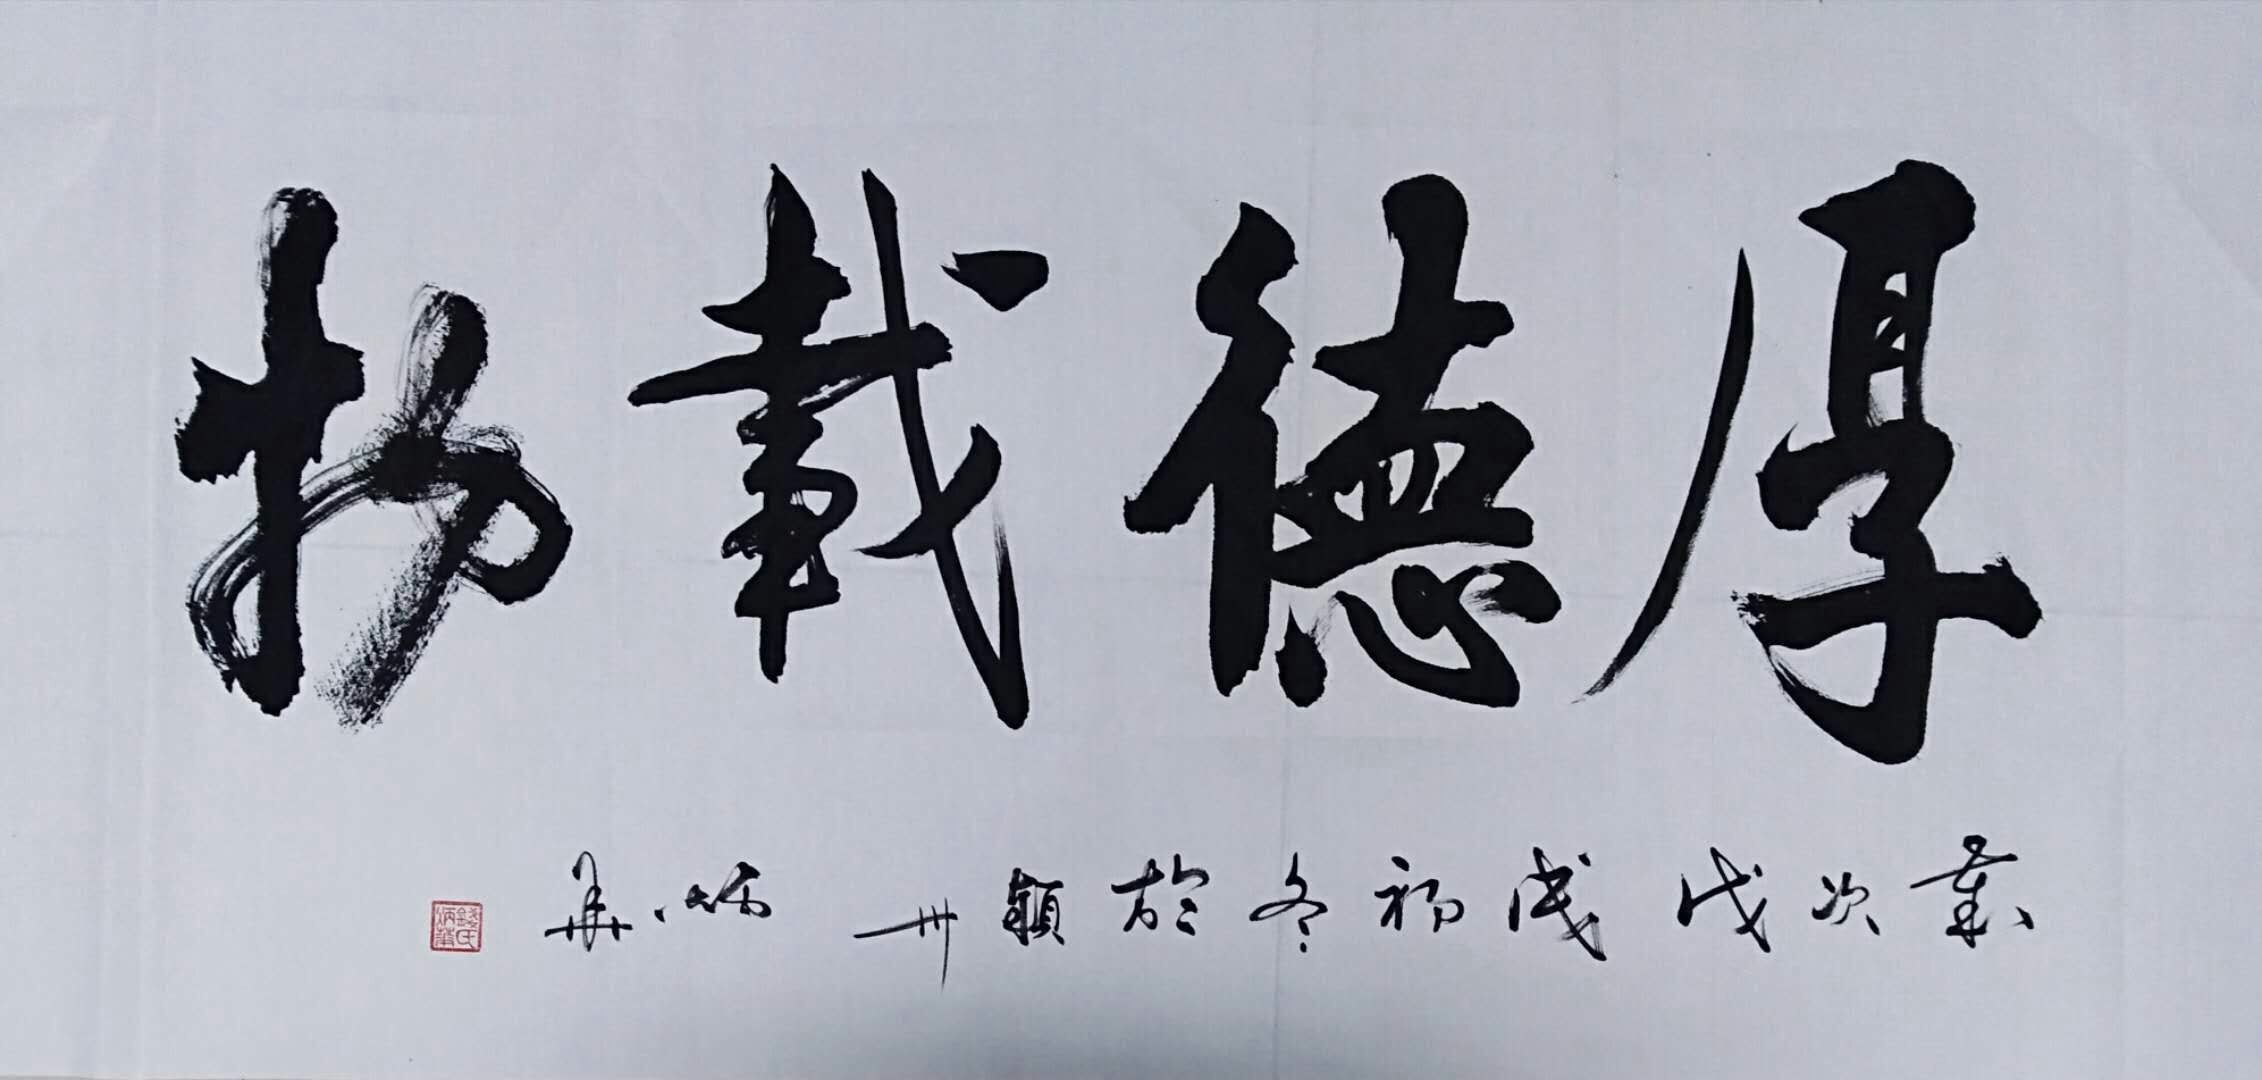 厚德載物
歲次戊戌初冬於穎州炳華
錢氏炳華